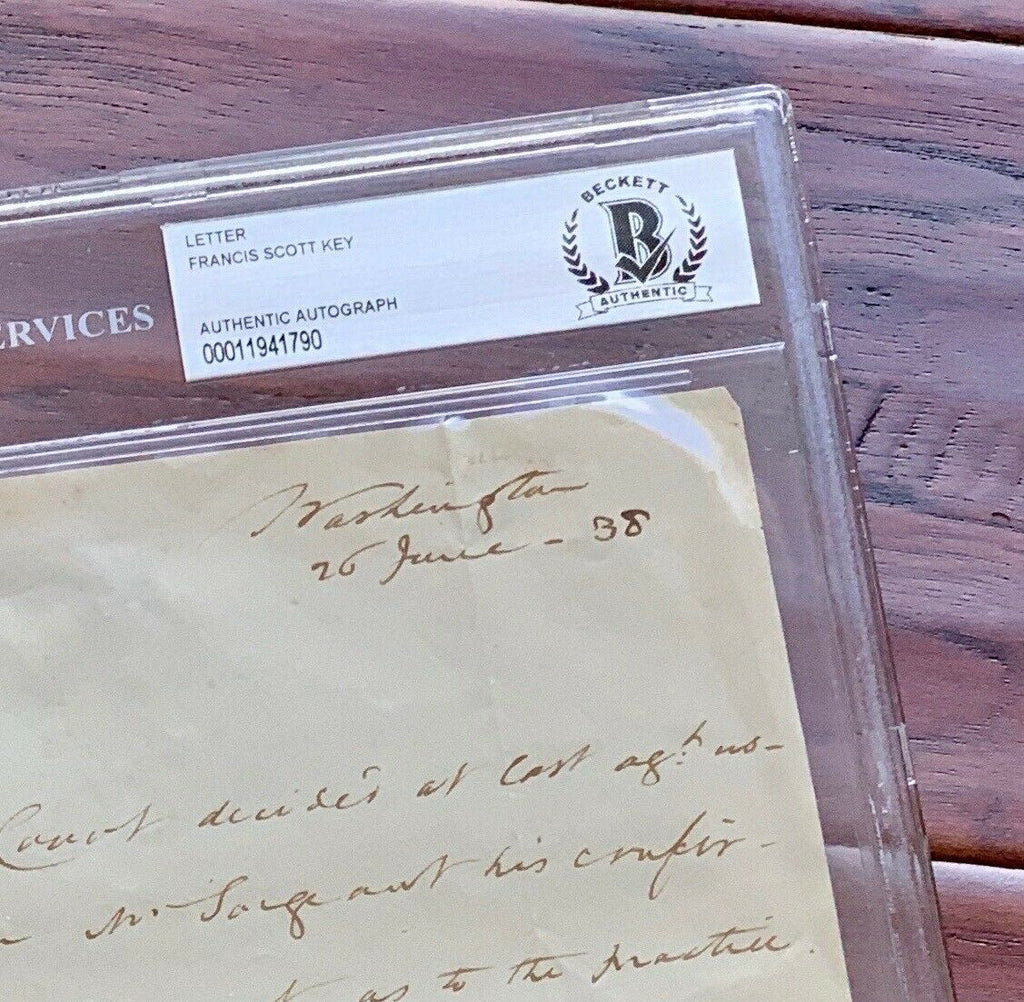 LETTER
FRANCIS SCOTT KEY
BECKETT
B
AUTHENTIC
AUTHENTIC AUTOGRAPH
00011941790
ERVICES
Washington
26 June - 38
Court decided at last agt. us-
Mr Sargeant his
as to the practice.